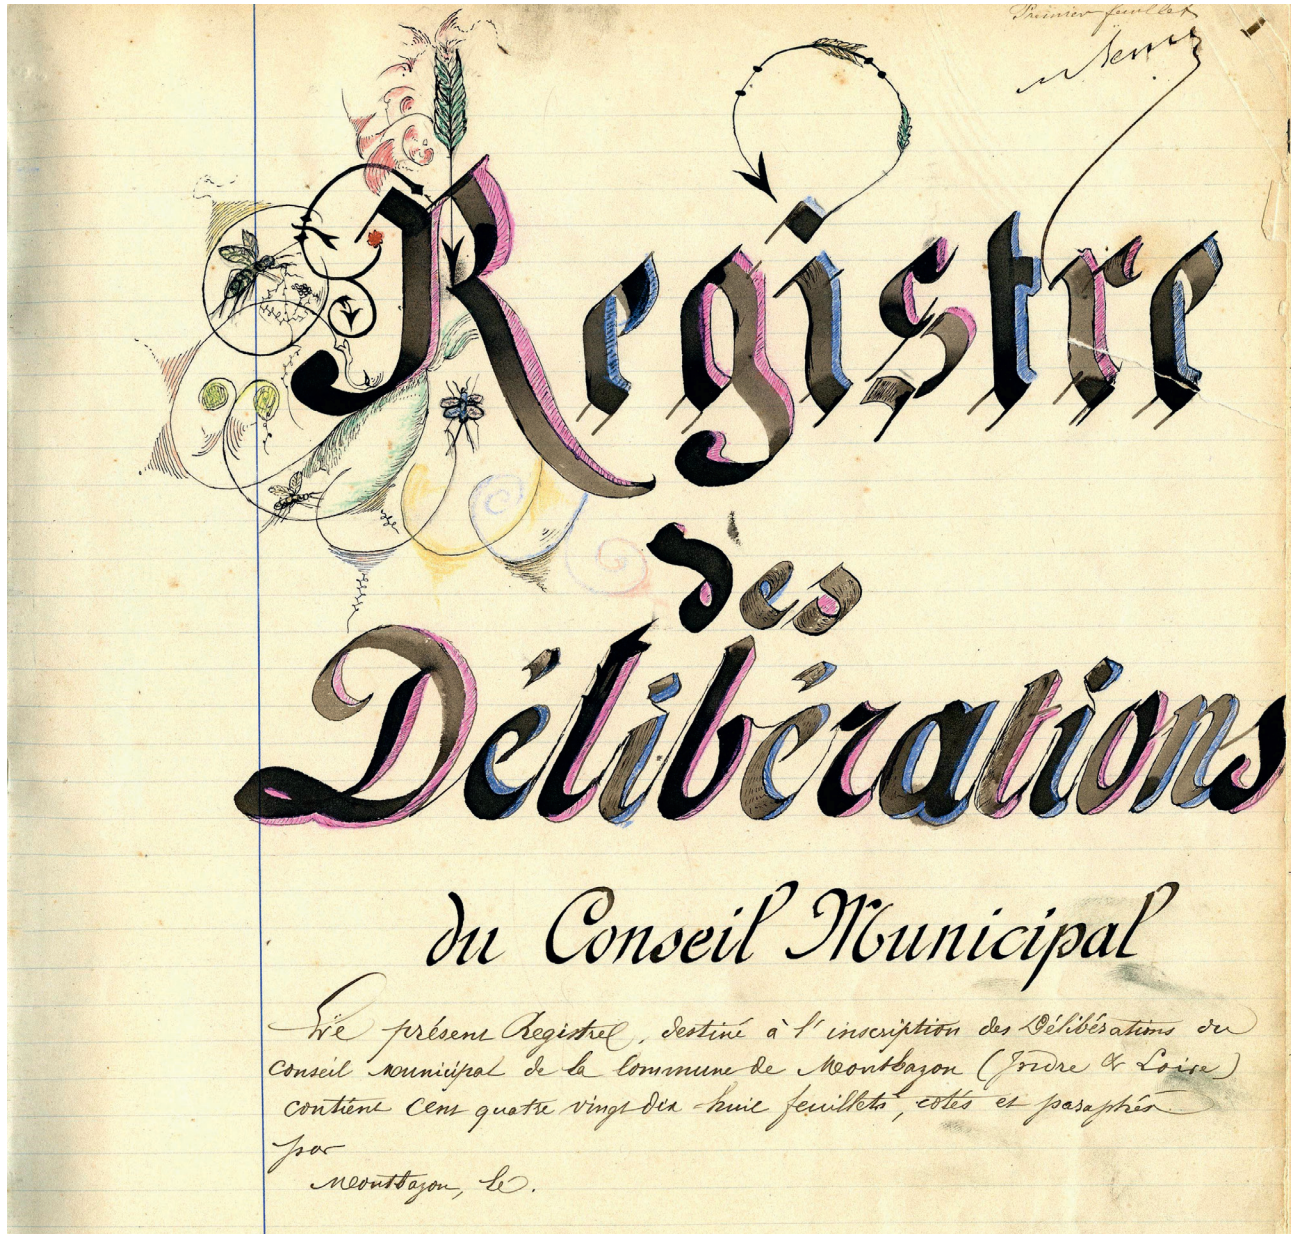 Premier feuillet
Registre
des
Délibérations
du Conseil Municipal
Le présent Registre, destiné à l'inscription des Délibérations du
conseil municipal de la commune de Montbazon (Indre & Loire)
contient cent quatre vingt dix-huit feuillets, cotés et paraphés
par
Montbazon, le.